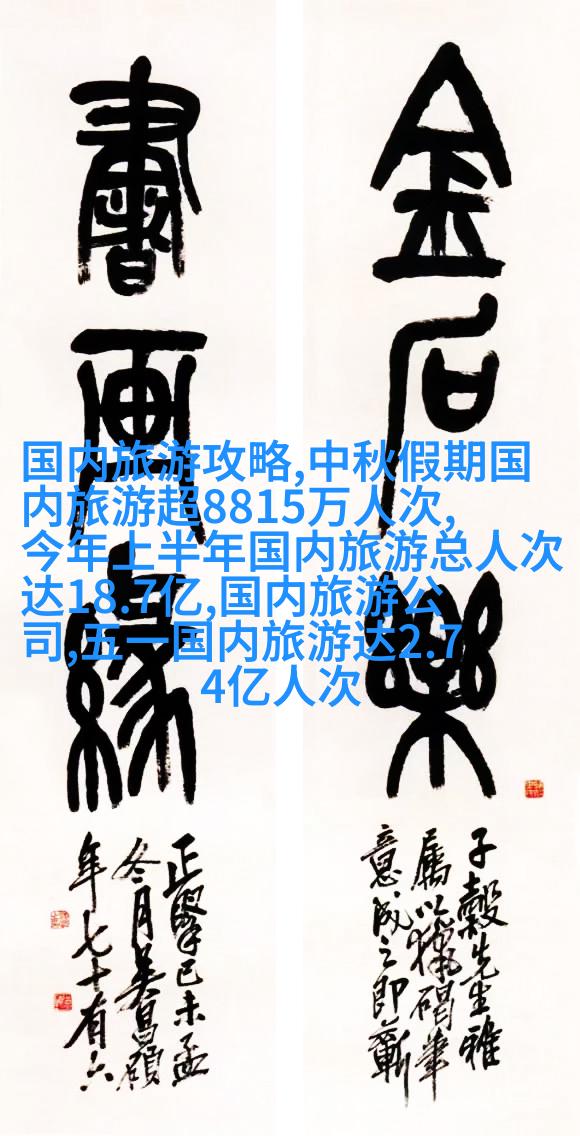 金石樂
子穀先生雅
屬以獵碣筆
意成之即蘄
書畫緣
正 己未孟
冬月吴昌碩
年七十有六
国内旅游攻略,中秋假期国
内旅游超8815万人次,
今年上半年国内旅游总人次
达18.7亿,国内旅游公
司,五一国内旅游达2.7
4亿人次